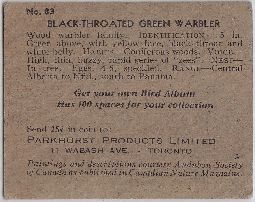 No. 83
BLACK-THROATED GREEN WARBLER
Wood warbler family. IDENTIFICATION — 5 in.
Green above, with yellow face, black throat and
white belly. HAUNTS — Coniferous woods. VOICE —
High, thin, buzzy, rapid series of "zees". NEST —
In tree. EGGS — 4-5, speckled. RANGE — Central
Alberta to Nfld., south to Panama.
Get your own Bird Album
Has 100 spaces for your collection
Send 25¢ in coin to:
PARKHURST PRODUCTS LIMITED
11 WABASH AVE. - TORONTO
Paintings and descriptions courtesy Audubon Society
of Canada as published in Canadian Nature Magazine.